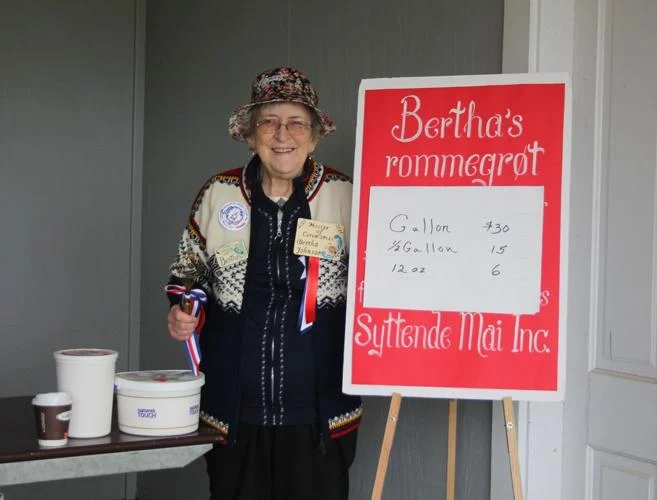 Bertha's
rommegrøt
Gallon $30
½ Gallon 15
12 oz 6
Syttende Mai Inc.
Bertha
Master
of
Ceremonies
Bertha
Johnson
nature's
TOUCH